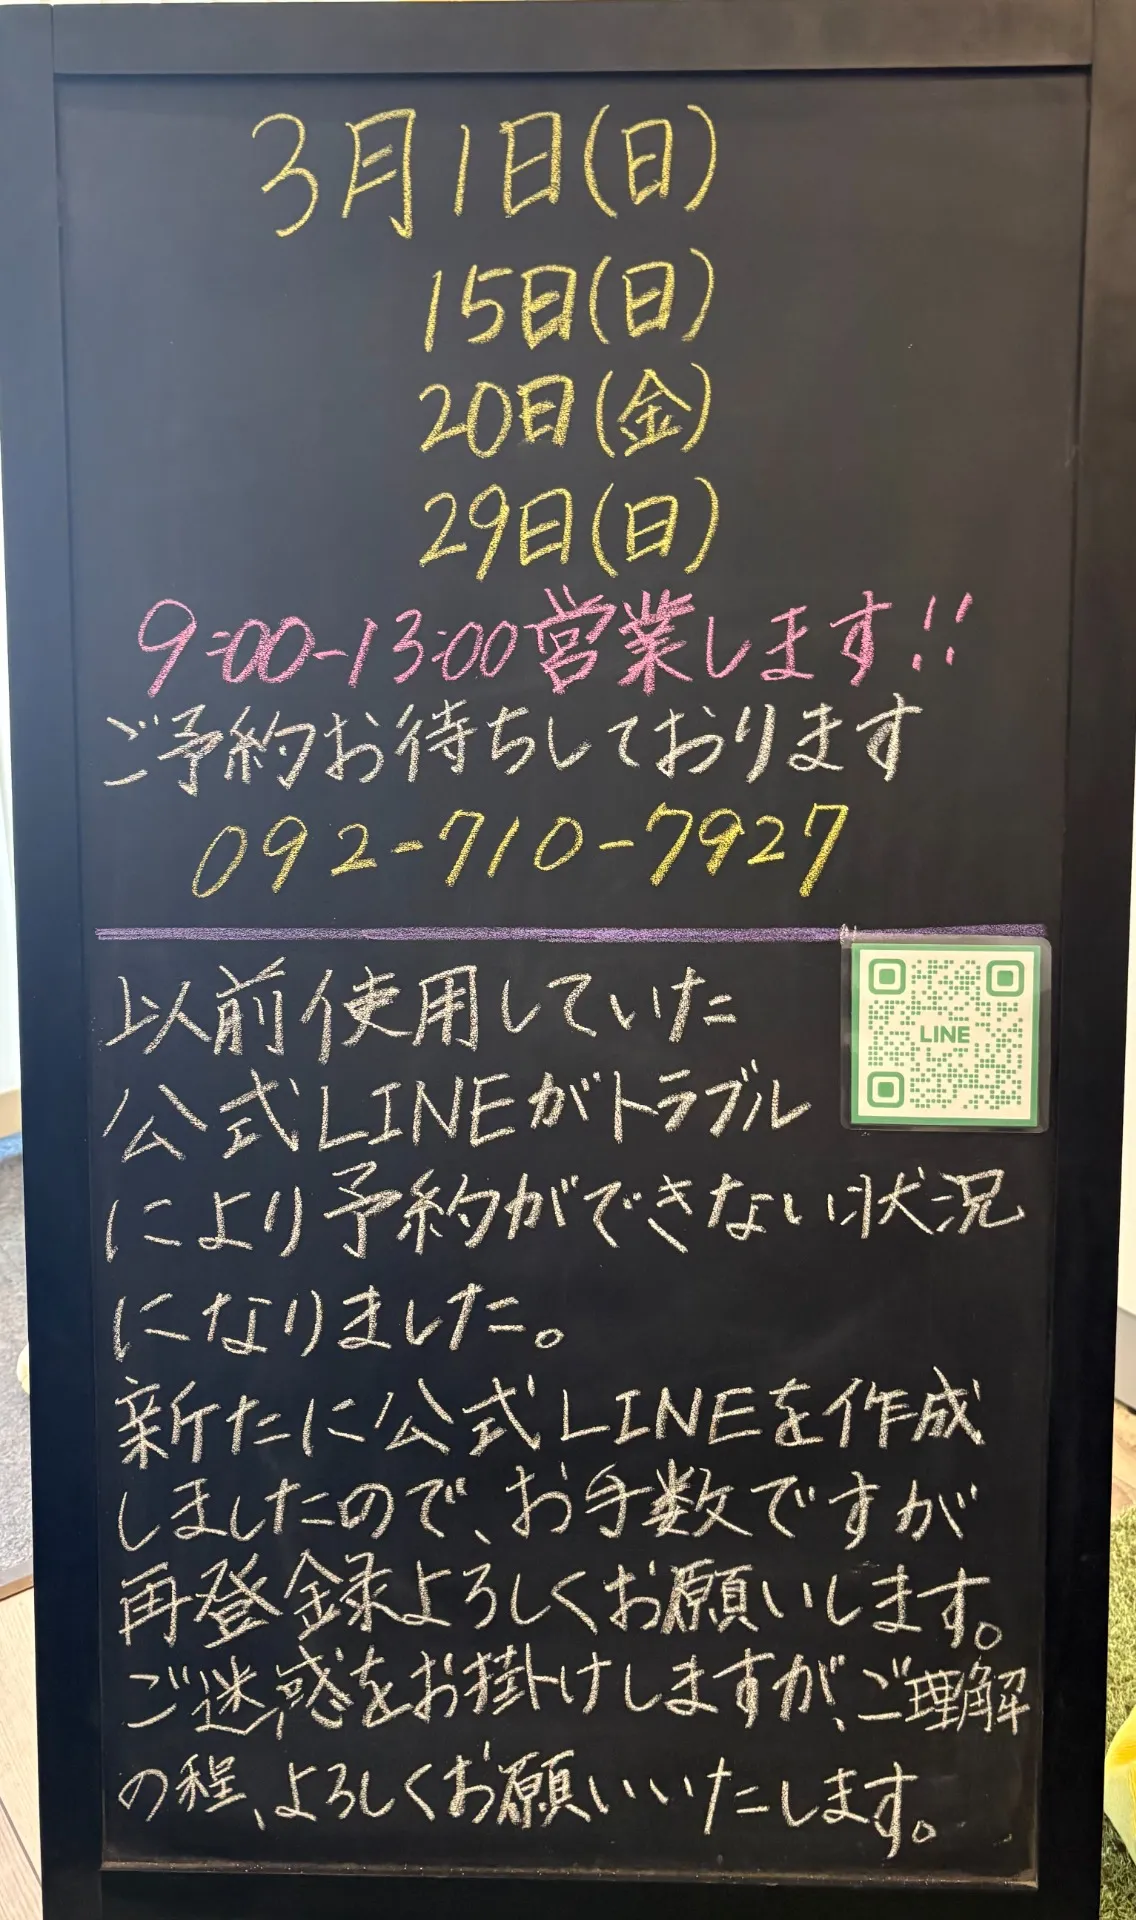 3月1日(日)
15日(日)
20日(金)
29日(日)
9:00-13:00営業します!!
ご予約お待ちしております
092-710-7927
以前使用していた
LINE
公式LINEがトラブル
により予約ができない状況
になりました。
新たに公式LINEを作成
しましたので、お手数ですが
再登録よろしくお願いします。
ご迷惑をお掛けしますが、ご理解
の程、よろしくお願いいたします。